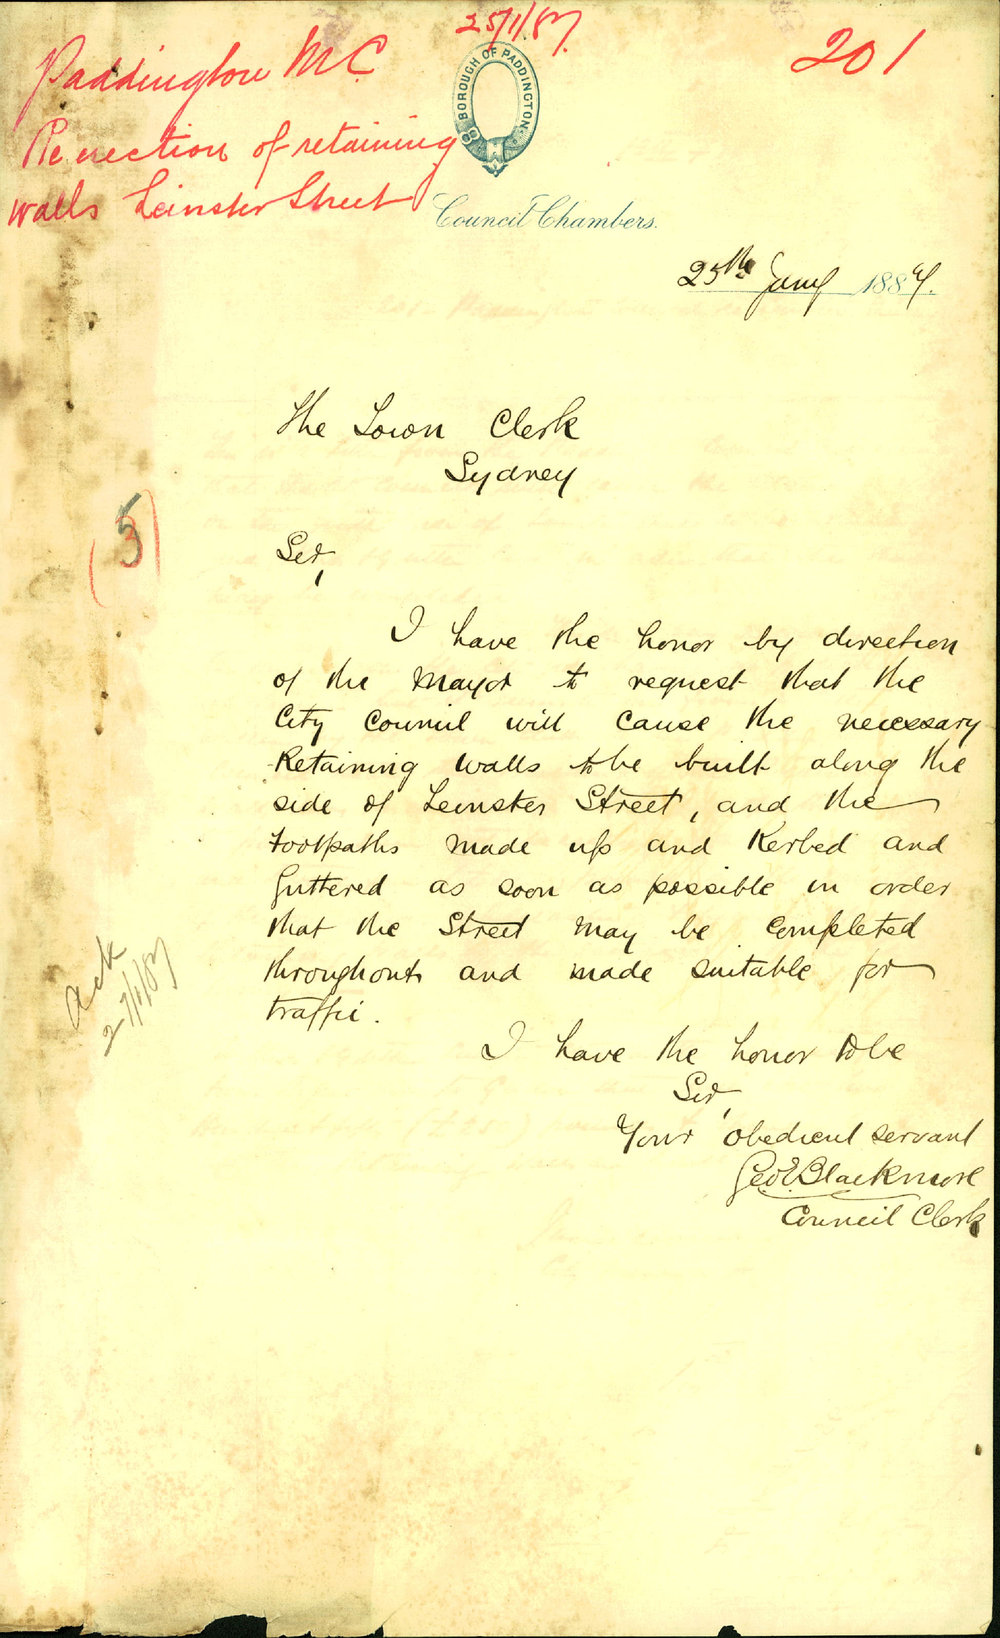 25/1/87.
Paddington M.C
201
Re erection of retaining
walls Leinster Street
BOROUGH OF PADDINGTON
Council Chambers.
25th Jany 1887.
The Town Clerk
Sydney
(5)
Sir,
I have the honor by direction
of the Mayor to request that the
City Council will cause the necessary
Retaining walls to be built along the
side of Leinster Street, and the
footpaths made up and Kerbed and
Guttered as soon as possible in order
that the Street may be completed
throughout and made suitable for
traffic.
Ack
27/1/87
I have the honor to be
Sir,
Your obedient servant
Geo E. Blackmore
Council Clerk